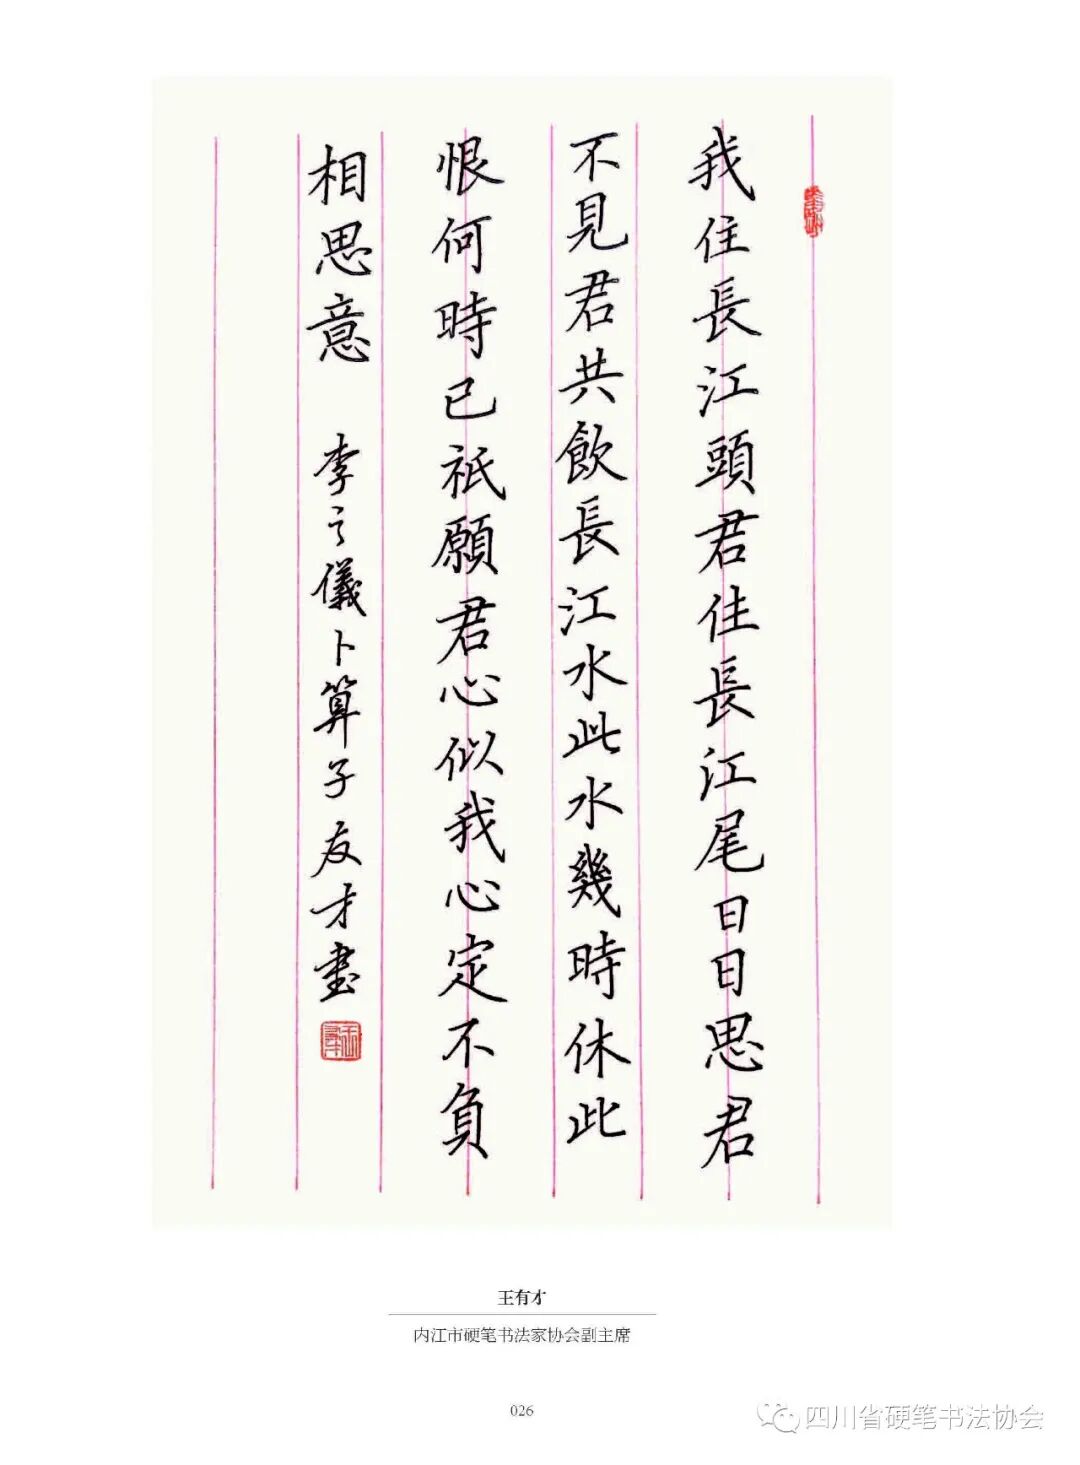 我住長江頭君住長江尾日日思君
不見君共飲長江水此水幾時休此
恨何時已祇願君心似我心定不負
相思意 李之儀卜算子友才書
王有才
内江市硬笔书法家协会副主席
026
四川省硬笔书法协会